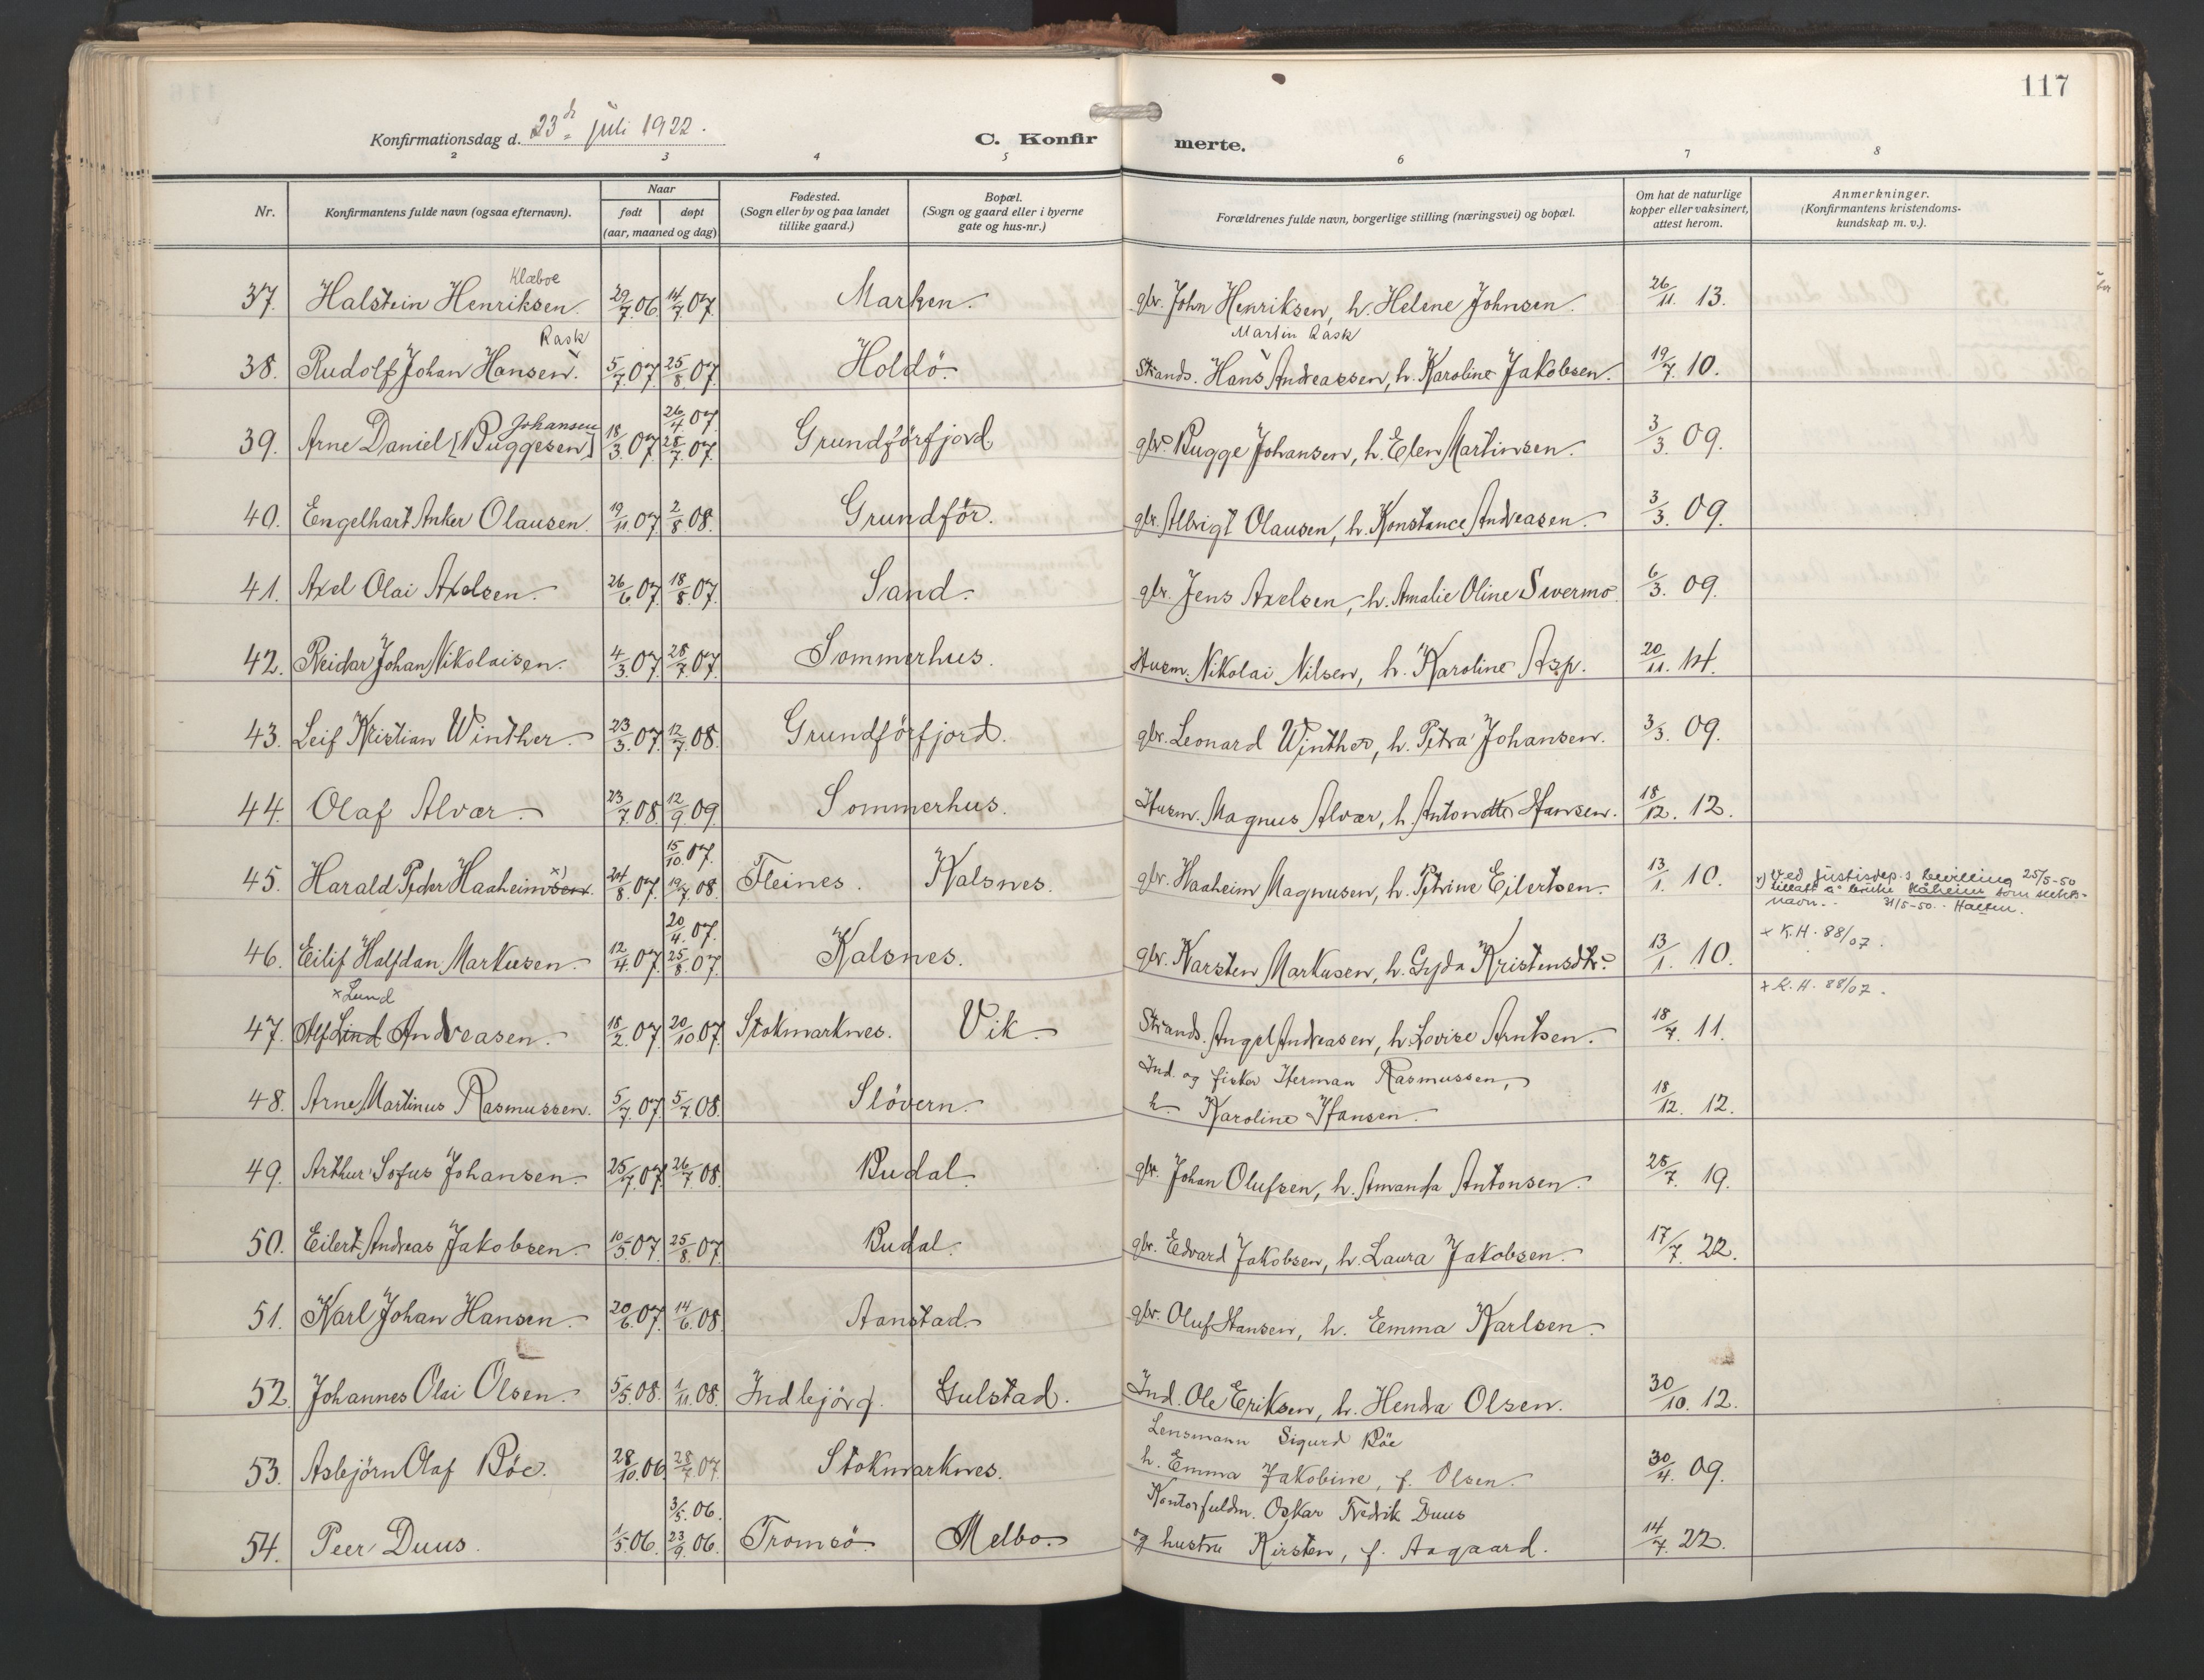 117
Konfirmationsdag d. 23de juli 1922.
C. Konfir
merte.
2 3 4 5 6 7 8
Nr.
Konfirmantens fulde navn (ogsaa efternavn).
Naar
født døpt
(aar, maaned og dag)
Fødested.
(Sogn eller by og paa landet
tillike gaard.)
Bopæl.
(Sogn og gaard eller i byerne
gate og hus-nr.)
Forældrenes fulde navn, borgerlige stilling (næringsvei) og bopæl.
Om hat de naturlige
kopper eller vaksinert,
attest herom.
Anmerkninger.
(Konfirmantens kristendoms-
kundskap m. v.).
Klæboe
37. Halstein Henriksen. 29/7.06. 14/7.07. Marken. gbr. John Henriksen, h. Helene Johnsen. 26/11. 13.
Rask
Martin Rask
38. Rudolf Johan Hansen. 5/7.07. 25/8.07. Holdö. Strands. Hans Andreassen, h. Karoline Jakobsen. 19/7. 10.
Johansen 26/4.07.
39. Arne Daniel [Buggesen] 18/3.07. 28/7.07. Grundförfjord gbr. Bugge Johansen, h. Elen Martinsen. 3/3. 09.
40. Engelhart Anker Olausen. 19/11.07. 2/8.08. Grundför. gbr. Albrigt Olausen, h. Konstance Andreasen. 3/3. 09.
41. Axel Olai Axelsen. 26/6.07. 18/8.07. Sand. gbr. Jens Axelsen, h. Amalie Oline Swermo. 6/3. 09.
42. Reidar Johan Nikolaisen. 4/3.07. 28/7.07. Sommerhus. Husm. Nikolai Nilsen, h. Karoline Asp. 20/11. 14.
43. Leif Kristian Winther. 23/3.07. 12/7.08. Grundförfjord. gbr. Leonard Winther, h. Petra Johansen. 3/3. 09.
44. Olaf Alvær. 23/7.08. 12/9.09. Sommerhus. Husm. Magnus Alvær, h. Antonette Hansen. 18/12. 12.
15/10.07.
45. Harald Peder Haaheimsen. x) 24/8.07. 19/7.08. Fleines. Kalsnes. gbr. Haaheim Magnusen, h. Petrine Eilertsen. 13/1. 10.
x) ved justisdep.s bevilling 25/5-50
tillatt å bruke Håheim som slekts-
navn. 31/5-50. Halten.
20/4.07.
46. Eilif Halfdan Markusen. 12/4.07. 25/8.07. Kalsnes. gbr. Karsten Markusen, h. Gyda Kristensdtr. 13/1. 10.
+ K.H. 88/07.
x Lund
47. Alf Lind Andreasen. 18/2.07. 20/10.07. Stokmarknes. Vik. Strands. Angel Andreasen, h. Lovise Arntsen. 18/7. 11.
+ K.H. 88/07.
Ind. og fisker Herman Rasmussen,
48. Arne Martinus Rasmussen. 5/7.07. 5/7.08. Slövern. h. Karoline Hansen. 18/12. 12.
49. Arthur Sofus Johansen. 25/7.07. 26/7.08. Budal. gbr. Johan Olufsen, h. Amanda Antonsen. 28/7. 19.
50. Eilert Andreas Jakobsen. 10/5.07. 25/8.07. Budal. gbr. Edvard Jakobsen, h. Laura Jakobsen. 17/7. 22.
51. Karl Johan Hansen. 20/6.07. 14/6.08. Aanstad. gbr. Oluf Hansen, h. Emma Karlsen.
52. Johannes Olai Olsen. 5/5.08. 1/11.08. Indbjörg. Gulstad. Ind. Ole Eriksen, h. Hendra Olsen. 30/10. 12.
Lensmann Sigurd Böe
53. Asbjörn Olaf Böe. 28/10.06. 28/7.07. Stokmarknes. h. Emma Jakobine, f. Olsen. 30/4. 09.
3/5.06. Kontorfuldm. Oskar Fredrik Duus
54. Peer Duus. 1/5.06. 23/9.06. Tromsö. Melbo. og hustru Kirsten, f. Aagaard. 14/7. 22.